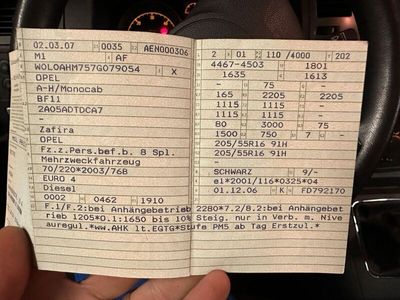 02.03.07 0035 AEN000306
M1 AF
WOLOAHM757G079054 X
OPEL
A-H/Monocab
BF11
2A05ADTDCA7
-
Zafira
OPEL
Fz.z.Pers.bef.b. 8 Spl.
Mehrzweckfahrzeug
70/220*2003/76B
EURO 4
Diesel
0002 0462 1910
2 01 110 /4000 202
4467-4503 1801
1635 1613
- 75 -
165 2205 2205
1115 1115 -
1115 1115 -
80 3000 75
1500 750 7 -
205/55R16 91H
205/55R16 91H
-
SCHWARZ 9/-
e1*2001/116*0325*04
01.12.06 K FD792170
F.1/F.2:bei Anhängebetrieb 2280*7.2/8.2:bei Anhängebet
rieb 1205*O.1:1650 bis 10% Steig. nur in Verb. m. Nive
auregul.*ww.AHK lt.EGTG*Stufe PM5 ab Tag Erstzul.*